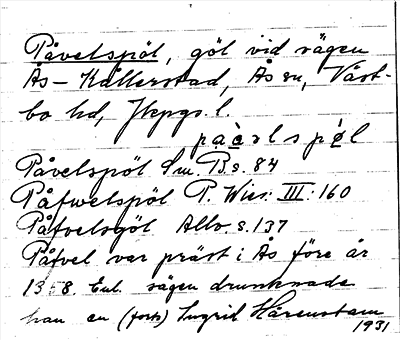 Påvelspöl, göl vid vägen
Ås–Kållerstad, Ås sn, Väst-
bo hd, Jkpgs. l.
pa̲c̲̀əlspø̀l
Påvelspöl Sm. B.s. 84
Påfwelspöl P. Wies: III: 160
Påfvelsgöl Allv. s. 137
Påfvel var präst i Ås före år
13 8. Enl. sägen drunknade
han en (forts) Ingrid Hårenstam
1931